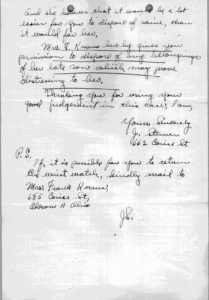 And she knows that it would be a lot
easier for you to dispose of same, than
it would for her.
Mrs. F. Kraus hereby gives you
permission to dispose of any belongings
of her late son which may prove
distressing to her.
Thanking you for using your
good judgement in this case, I am,
Yours Sincerely
J.
662 Corice St
P.S.
If it is possible for you to return
the wrist watch, kindly mail to
Mrs. Frank Kraus
686 Corice St,
Akron 11 Ohio
J.S.